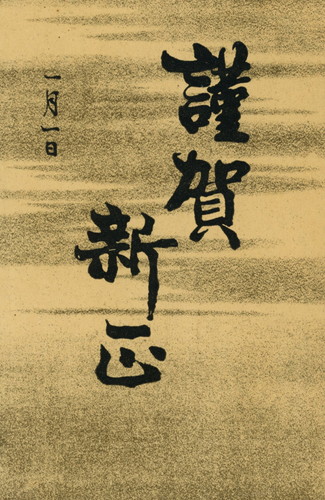 謹賀
新正
一月一日